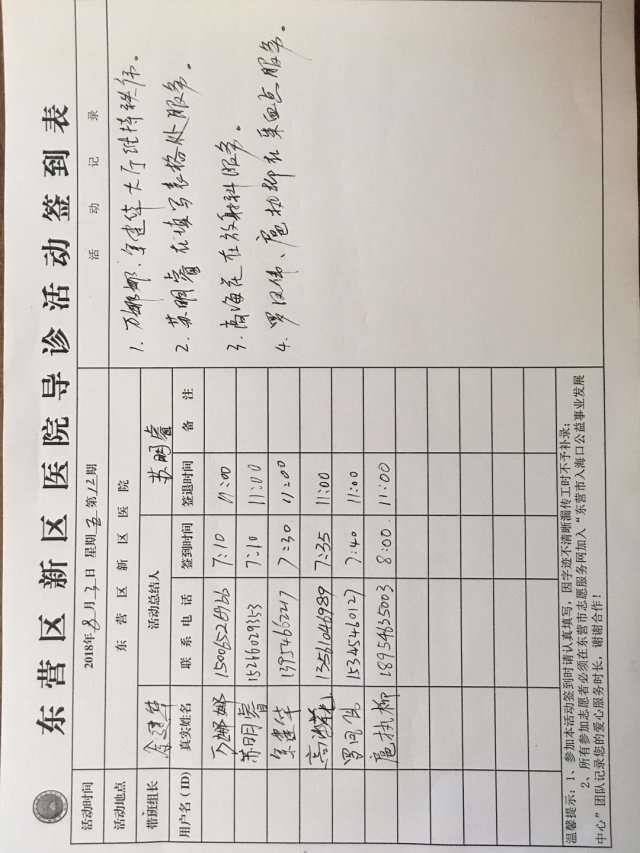 东营区新区医院导诊活动签到表
活动时间 2018年8月3日 星期五 第12期 活动记录
活动地点 东营区新区医院
带班组长 活动总结人 苏明睿
用户名(ID) 真实姓名 联系电话 签到时间 签退时间 备注
万娜娜 15006526966 7:10 11:00
苏明睿 15266029353 7:10 11:00
13954662217 7:30 11:00
高海花 13561046989 7:35 11:00
15345460127 7:40 11:00
扈执柳 18954635003 8:00 11:00
1. 万娜娜、 大厅维持秩序。
2. 苏明睿在填写表格处服务。
3. 高海花在放射科服务。
4. 罗汉伟、扈执柳在采血点服务。
温馨提示:1、参加本活动签到时请认真填写,因字迹不清晰漏传工时不予补录;
2、所有参加志愿者必须在东营市志愿服务网加入“东营市入海口公益事业发展
中心”团队记录您的爱心服务时长,谢谢合作!